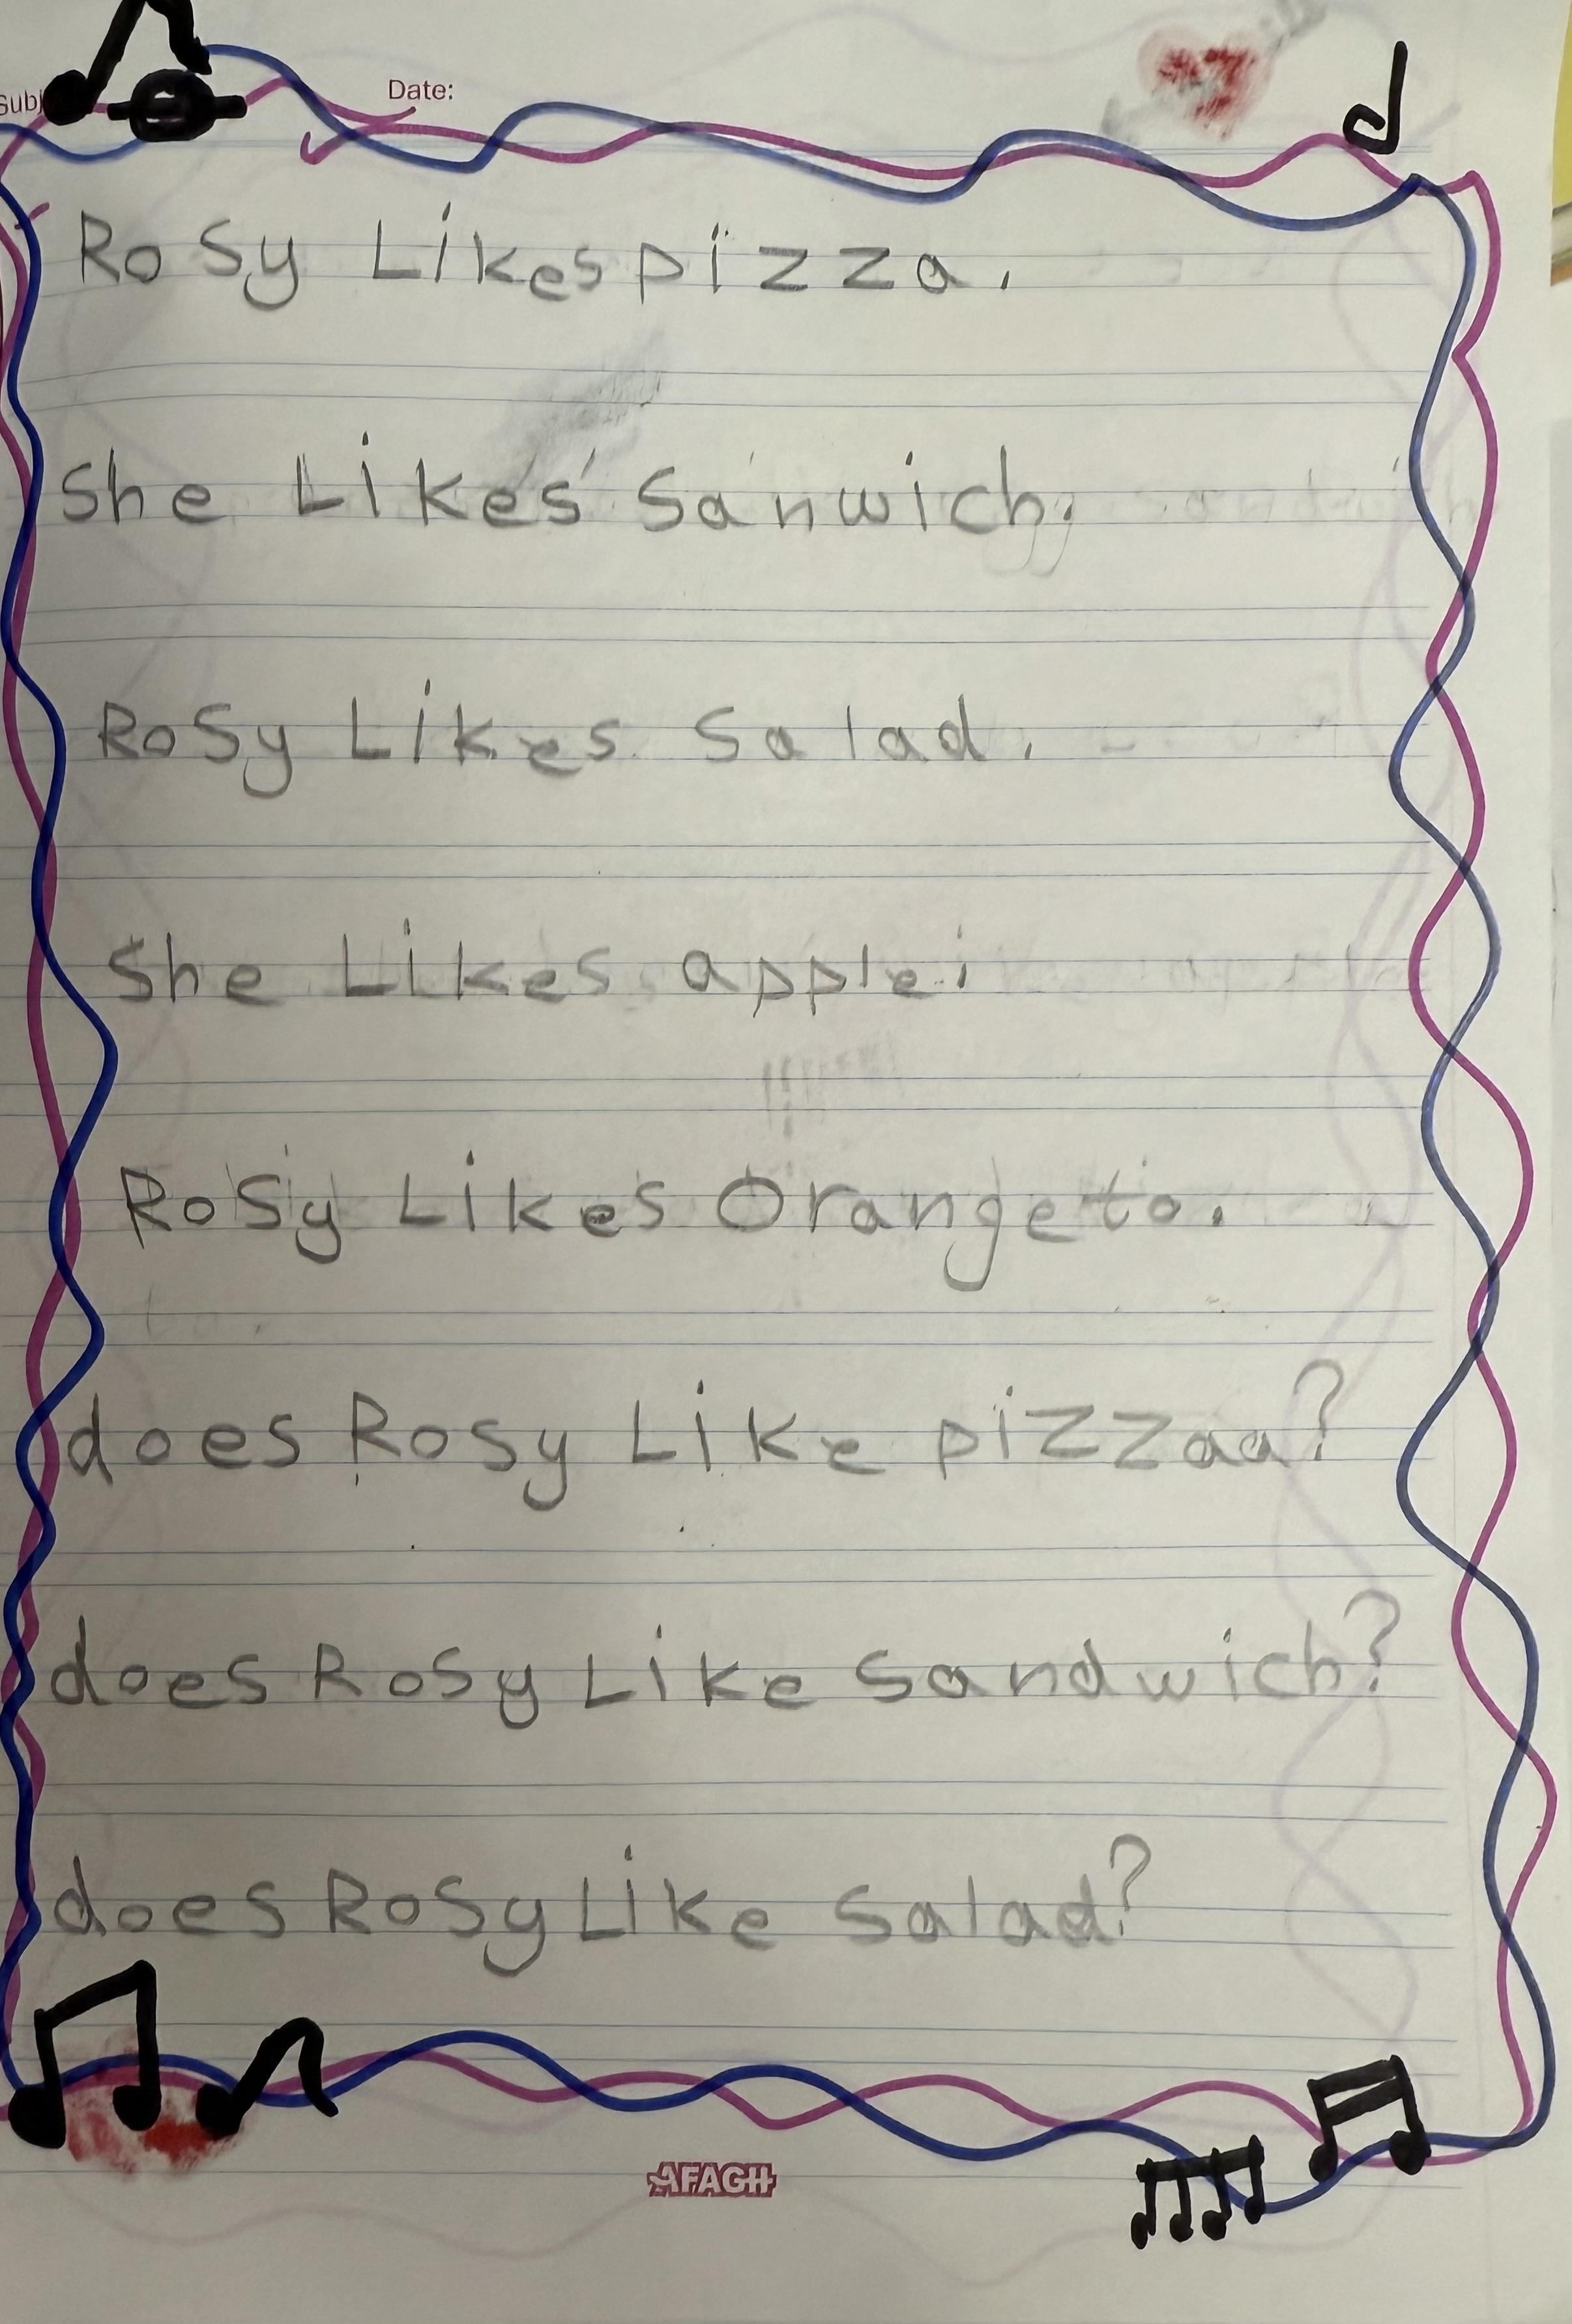 Subj
Date:
RoSy Likes pizza.
She Likes Sanwich.
RoSy Likes Salad.
She Likes apple.
RoSy Likes Orange to.
does RoSy Like pizzaa?
does RoSy Like Sandwich?
does RoSy Like Salad?
AFAGH